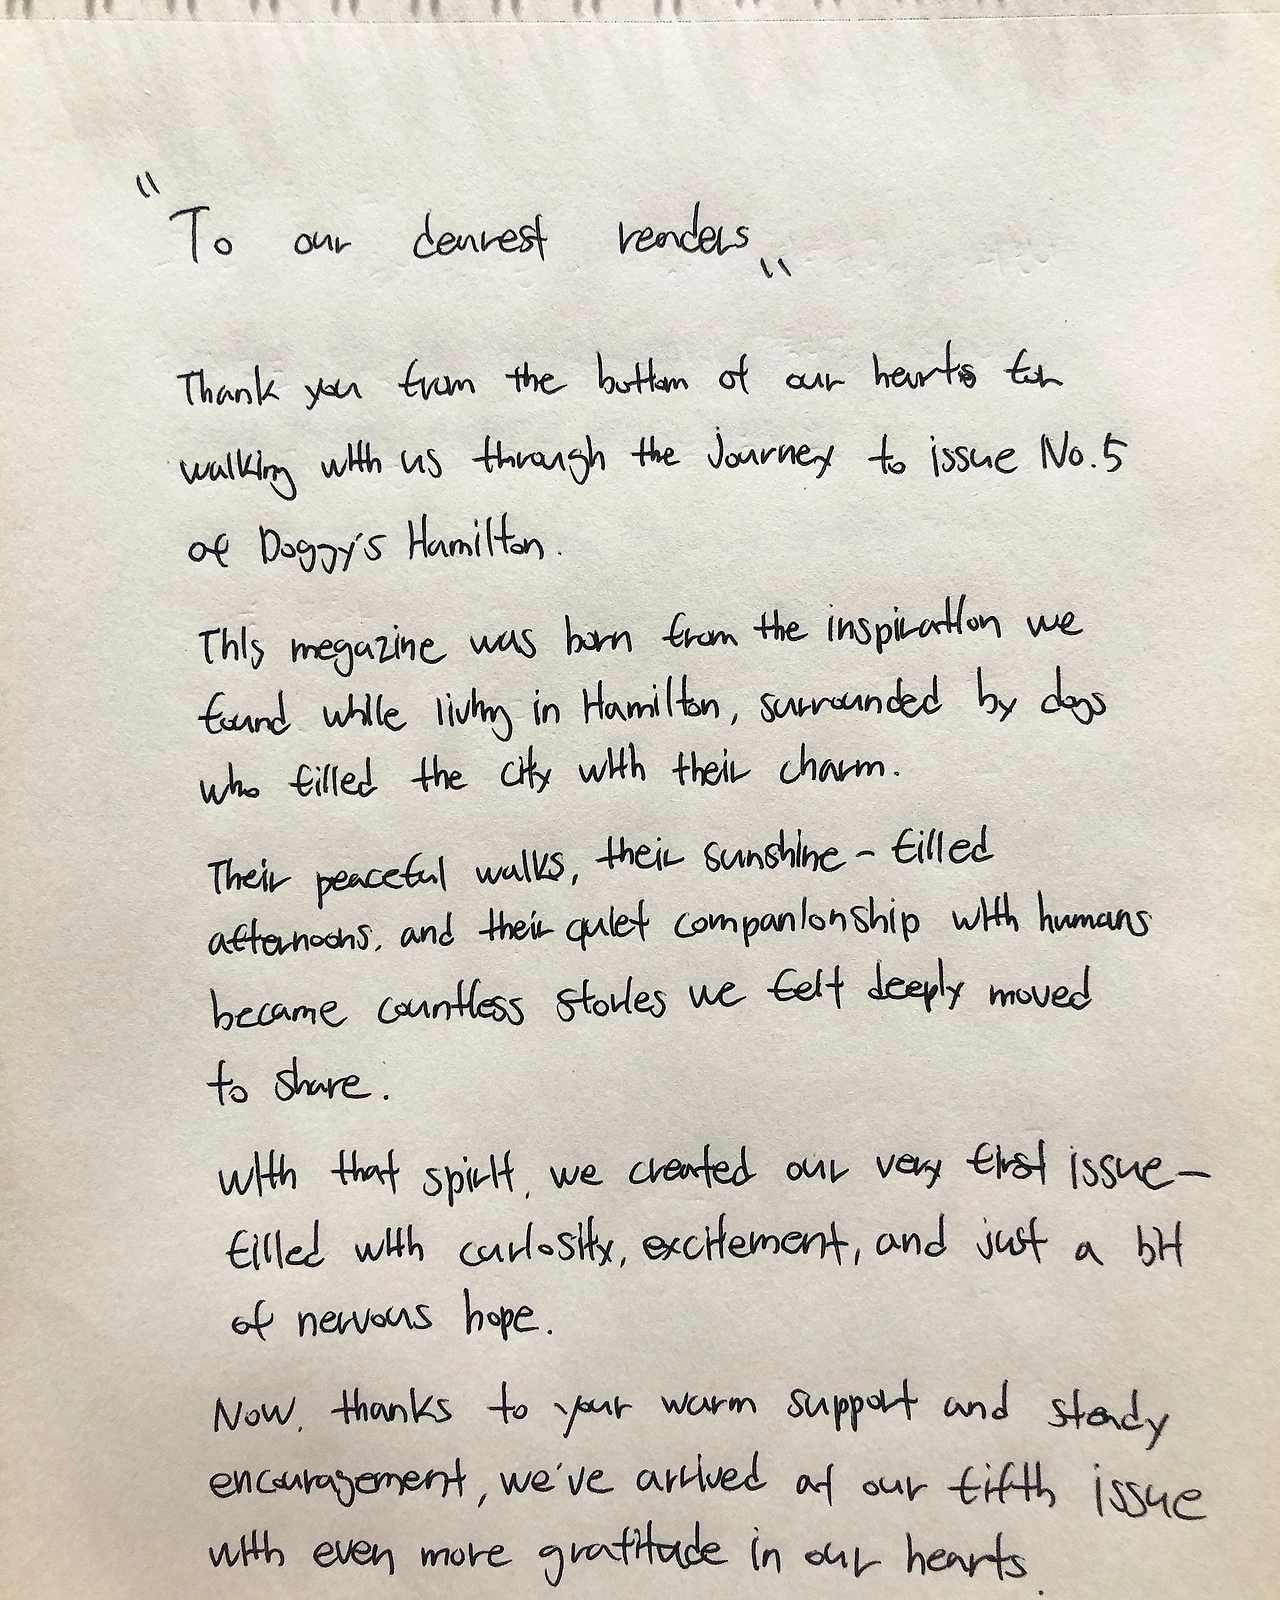 "To our dearest readers"
Thank you from the bottom of our hearts for
walking with us through the Journey to issue No.5
of Doggy's Hamilton.
This megazine was born from the inspiration we
found while living in Hamilton, surrounded by dogs
who filled the city with their charm.
Their peaceful walks, their sunshine-filled
afternoons, and their quiet companionship with humans
became countless stories we felt deeply moved
to share.
With that spirit, we created our very first issue—
filled with curiosity, excitement, and just a bit
of nervous hope.
Now, thanks to your warm support and steady
encouragement, we've arrived at our fifth issue
with even more gratitude in our hearts.